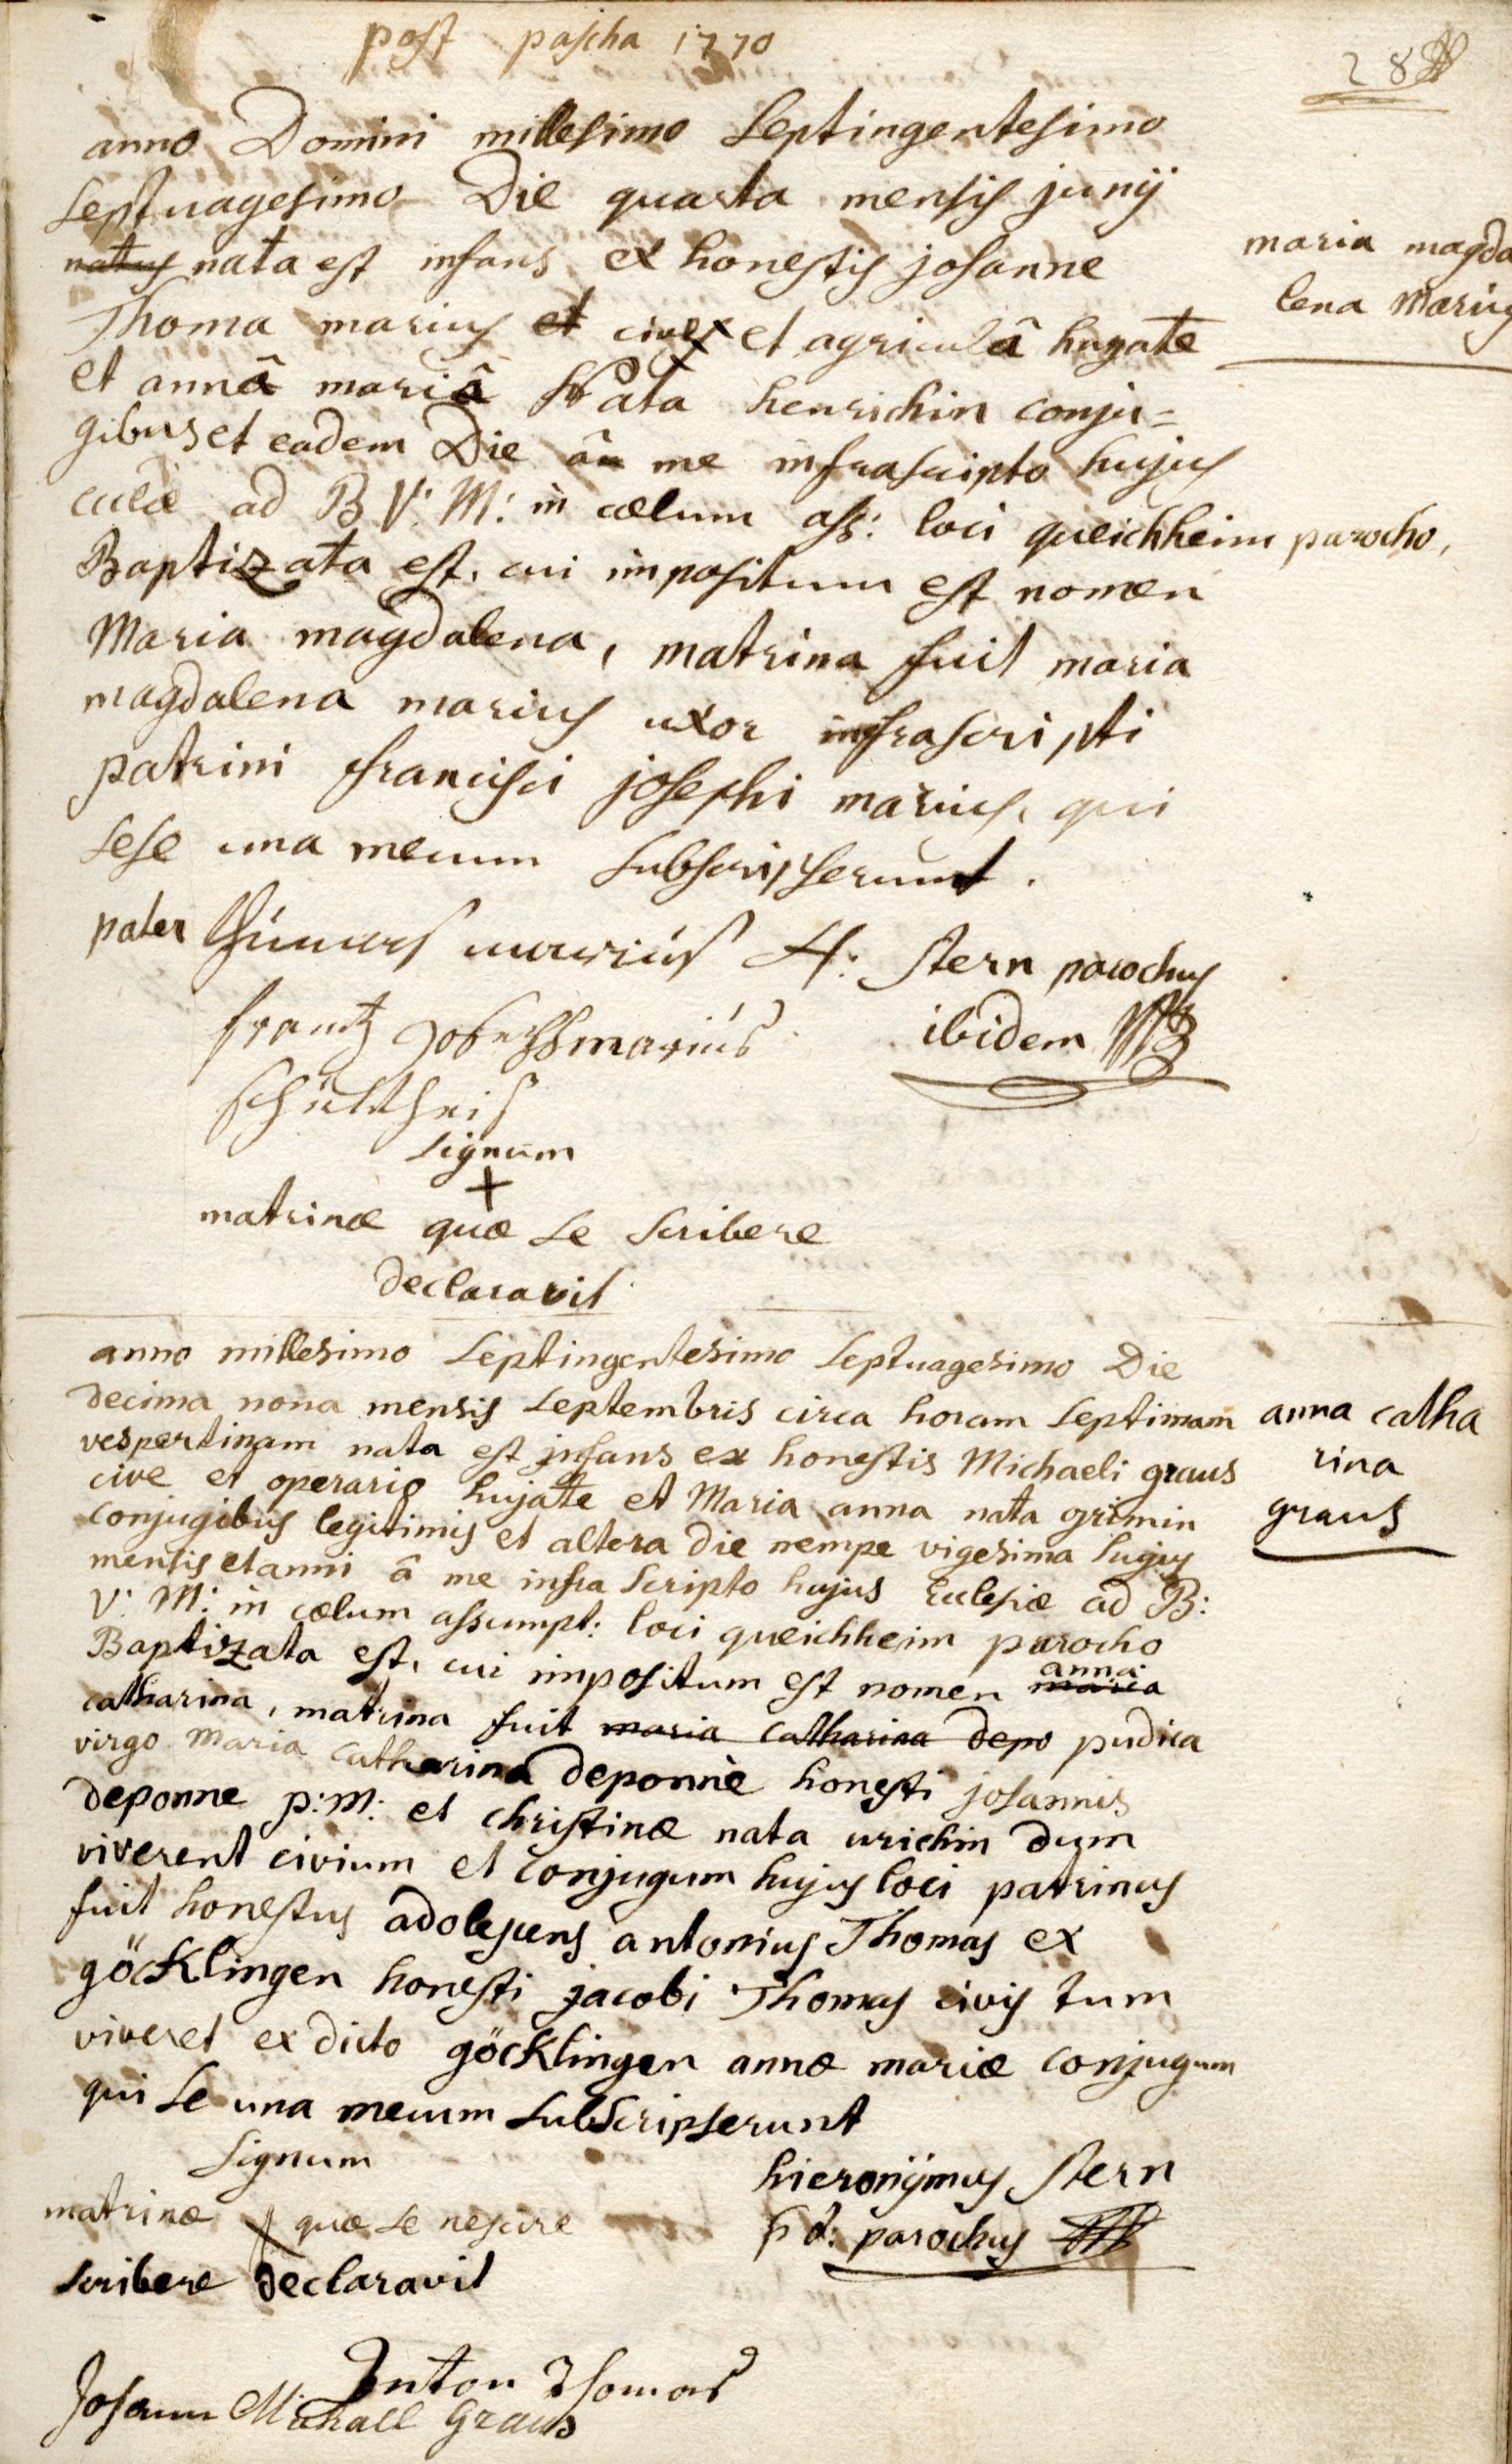 post pascha 1770
28
anno Domini millesimo Septingentesimo
septuagesimo Die quarta mensis junij
natus nata est infans ex honestis johanne
maria magda
Thoma marius et cive et agriculâ hugate
lena Marius
et annâ mariâ Nata henrichin conju=
gibus et eadem Die â me infrascripto hujus
ad B V: M: in cælum ass: loci queichheim parocho,
Baptizata est, cui impositum est nomen
Maria magdalena, matrina fuit maria
magdalena marius uxor infrascripti
patrini francisci josephi marius, qui
sese una mecum subscripserunt.
pater thomas marius H: stern parochus
frantz Joseph marius ibidem
schultheis
signum
+
matrinæ quæ se scribere
declaravit
anno millesimo septingentesimo septuagesimo Die
decima nona mensis septembris circa horam septimam
anna catha
vespertinam nata est infans ex honestis Michaeli graus
rina
cive et operario hujate et Maria anna nata grimin
graus
conjugibus legitimis et altera die nempe vigesima hujus
mensis et anni â me infra scripto hujus Ecclesiæ ad B:
V: M: in cælum assumpt: loci queichheim parocho
Baptizata est, cui impositum est nomen maria anna
catharina, matrina fuit maria catharina depo pudica
virgo Maria catharina deponne honesti johannis
deponne p: m: et christinæ nata urichin dum
viverent civium et conjugum hujus loci patrinus
fuit honestus adolescens antonius Thomas ex
göcklingen honesti jacobi Thomas civis tum
viveret ex dicto göcklingen annæ mariæ conjugum
qui se una mecum subscripserunt
signum
hieronijmus stern
matrinæ + quæ se nescire
p d: parochus
scribere declaravit
Anton Thomas
Johann Michall Graus